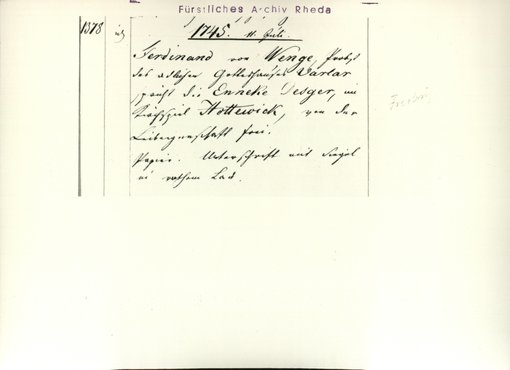 Fürstliches Archiv Rheda
1378
1745. 11. Juli.
Ferdinand von Wenge, Probst
des adlichen Gotteshauses Varlar
spricht die Enneke Desger, im
Kirchspiel Holtewick, von der
Leibeigenschaft frei.
Papier. Unterschrift mit Siegel
in rothem Lack.